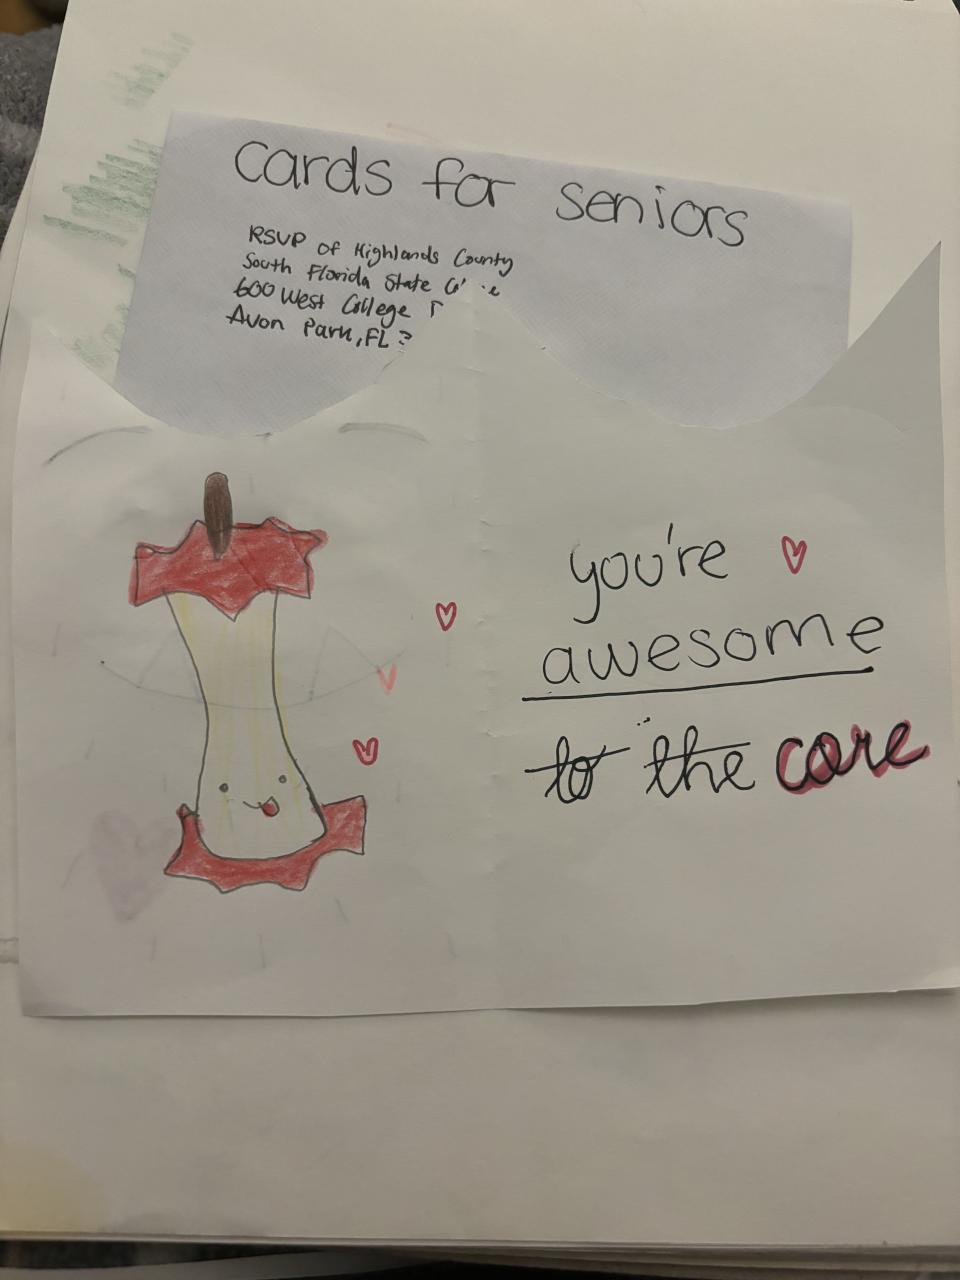 cards for seniors
RSVP of Highlands County
South Florida State
600 West College
Avon Park, FL
you're
awesome
to the core